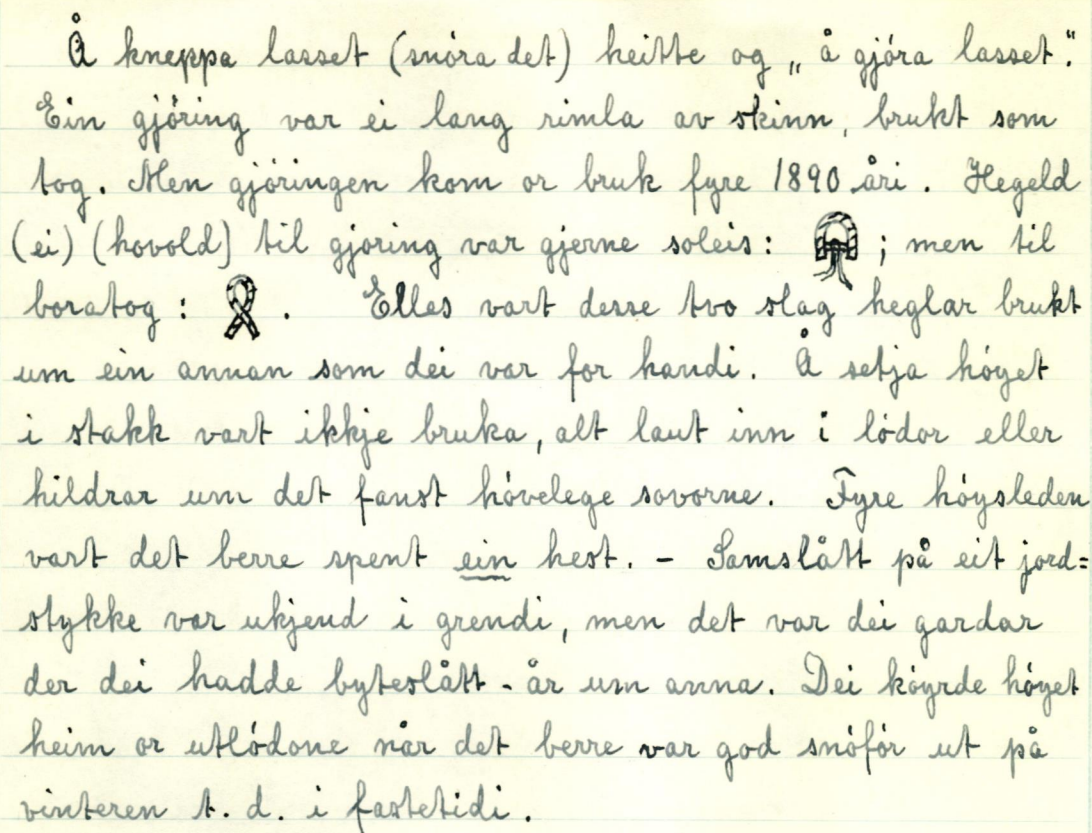 Å kneppa lasset (snóra det) heitte og „å gjóra lasset".
Ein gjóring var ei lang rimla av skinn, brukt som
tog. Men gjóringen kom or bruk fyre 1890 åri. Hegeld
(ei) (hovold) til gjoring var gjerne soleis: ; men til
boratog: . Elles vart desse tvo slag heglar brukt
um ein annan som dei var for handi. Å setja hóyet
i stakk vart ikkje bruka, alt laut inn i lódor eller
hildrar um det fanst hóvelege sovorne. Fyre hóysleden
vart det berre spent ein hest. - Samslått på eit jord=
stykke var ukjend i grendi, men det var dei gardar
der dei hadde byteslått - år um anna. Dei kóyrde hóyet
heim or utlódone når det berre var god snófór ut på
vinteren t. d. i fastetidi.